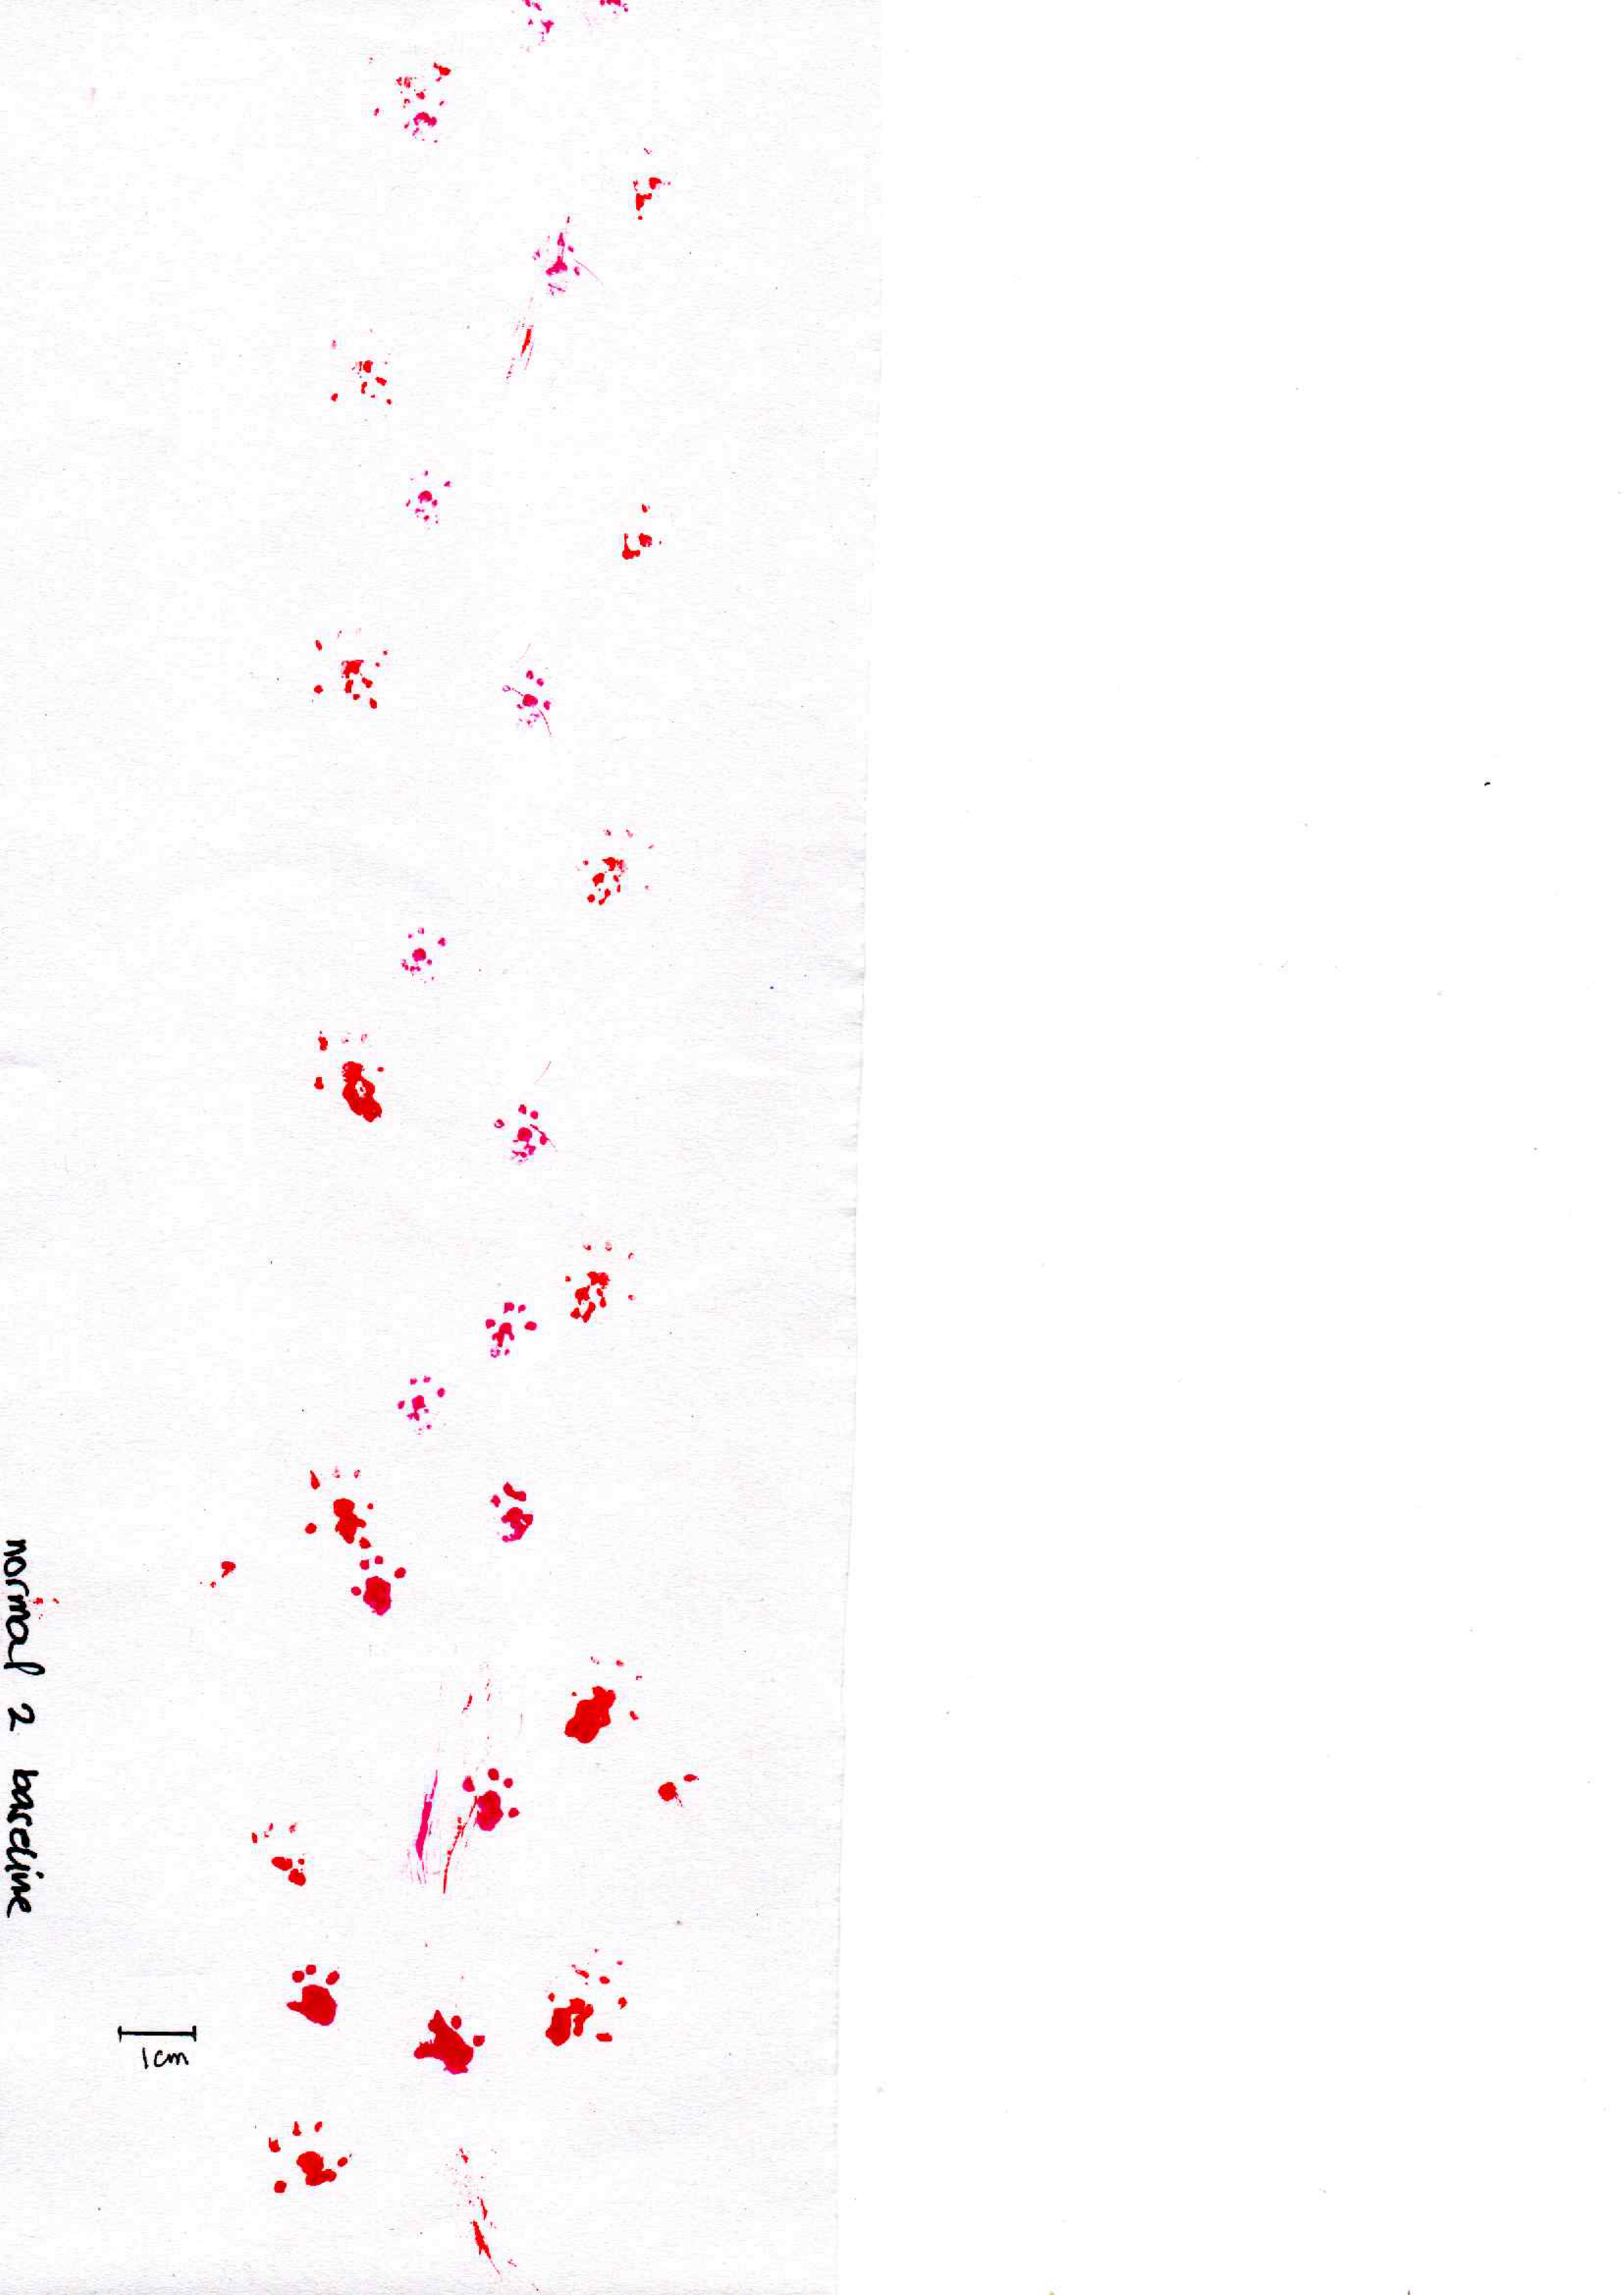 normal 2 baseline
1cm